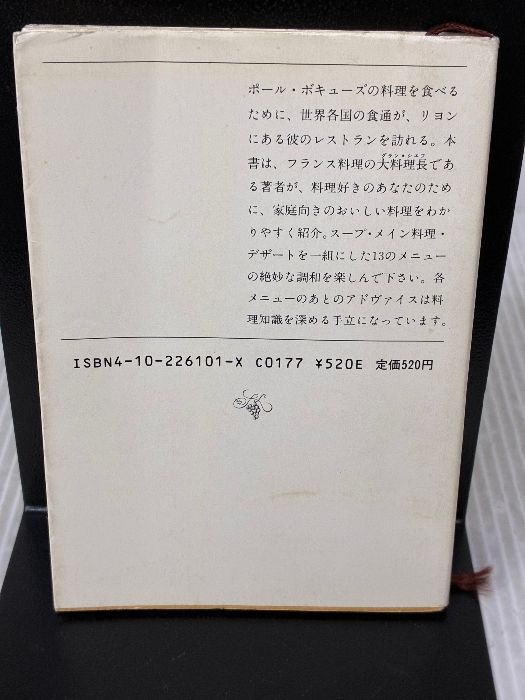 ポール・ボキューズの料理を食べる
ために、世界各国の食通が、リヨン
にある彼のレストランを訪れる。本
グラン・シェフ
書は、フランス料理の大料理長であ
る著者が、料理好きのあなたのため
に、家庭向きのおいしい料理をわか
りやすく紹介。スープ・メイン料理・
デザートを一組にした13のメニュー
の絶妙な調和を楽しんで下さい。各
メニューのあとのアドヴァイスは料
理知識を深める手立になっています。
ISBN4-10-226101-X C0177 ¥520E 定価520円